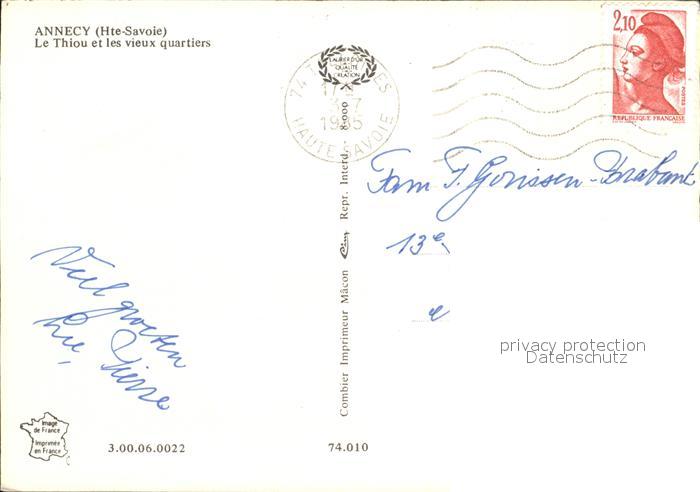 ANNECY (Hte-Savoie)
Le Thiou et les vieux quartiers
LAURIER D'OR
QUALITÉ
CRÉATION
74
1985
HAUTE-SAVOIE
2,10
POSTES
REPUBLIQUE FRANÇAISE
Fam F. Gorissen-Brabant
13e
e
Veel groeten
Pierre
Combier Imprimeur Mâcon Cim Repr. Interd. 8-000
privacy protection
Datenschutz
Image
de France
Imprimée
en France
3.00.06.0022
74.010